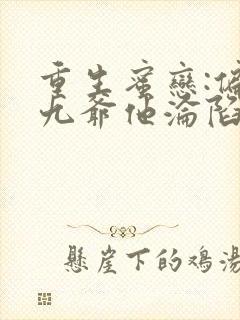 重生蜜戀:偏
九爺他淪陷
懸崖下的鸡湯